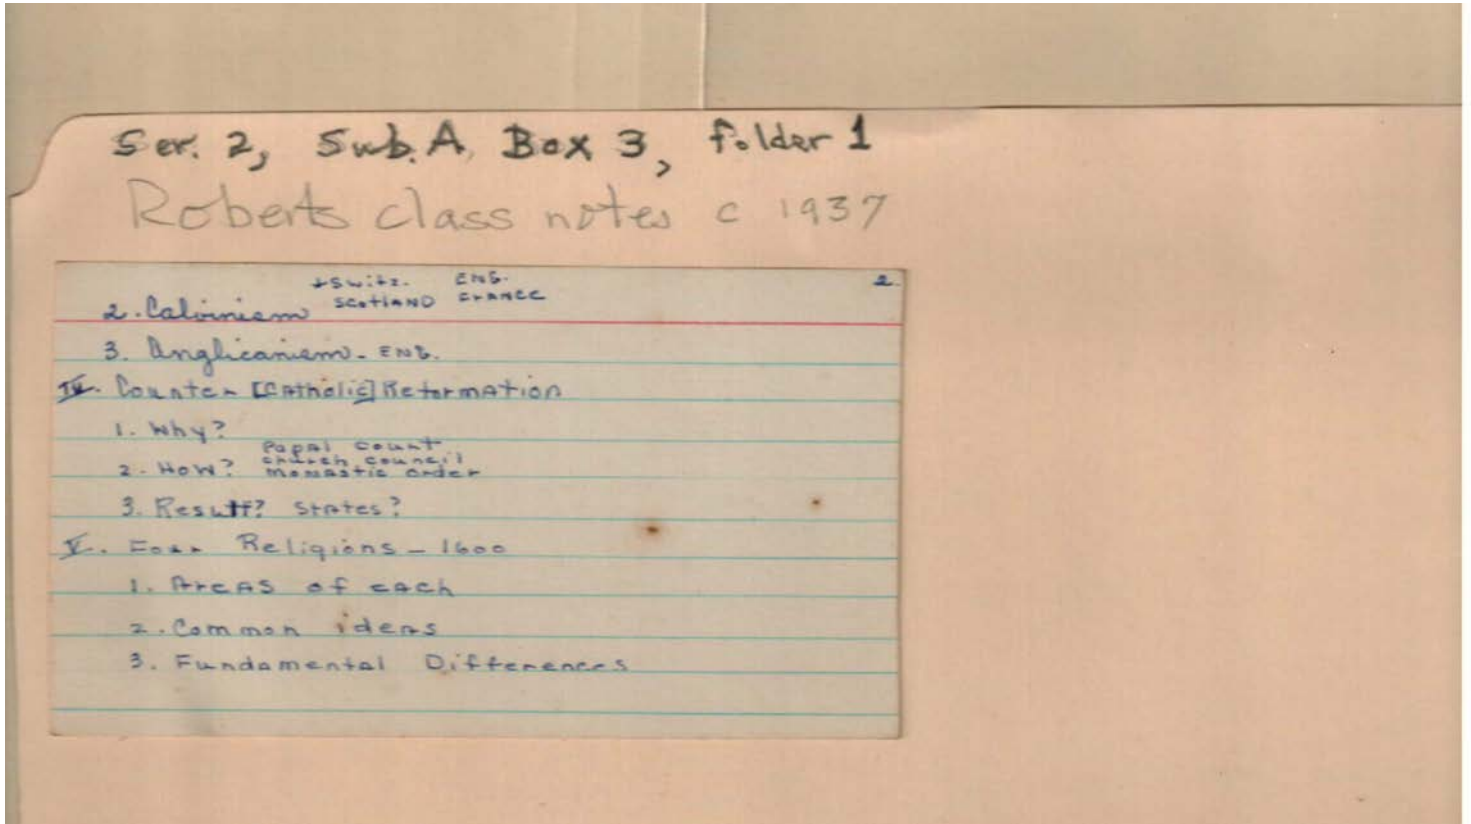 Ser. 2, Sub. A, Box 3, Folder 1
Roberts class notes c 1937
2.
+Switz. ENG.
2. Calvinism SCOTLAND FRANCE
3. Anglicanism - ENG.
IV. Counter - [Catholic] Reformation
1. Why?
Papal Count
church council
2. How? monastic order
3. Result? States?
V. Four Religions - 1600
1. Areas of each
2. Common ideas
3. Fundamental Differences